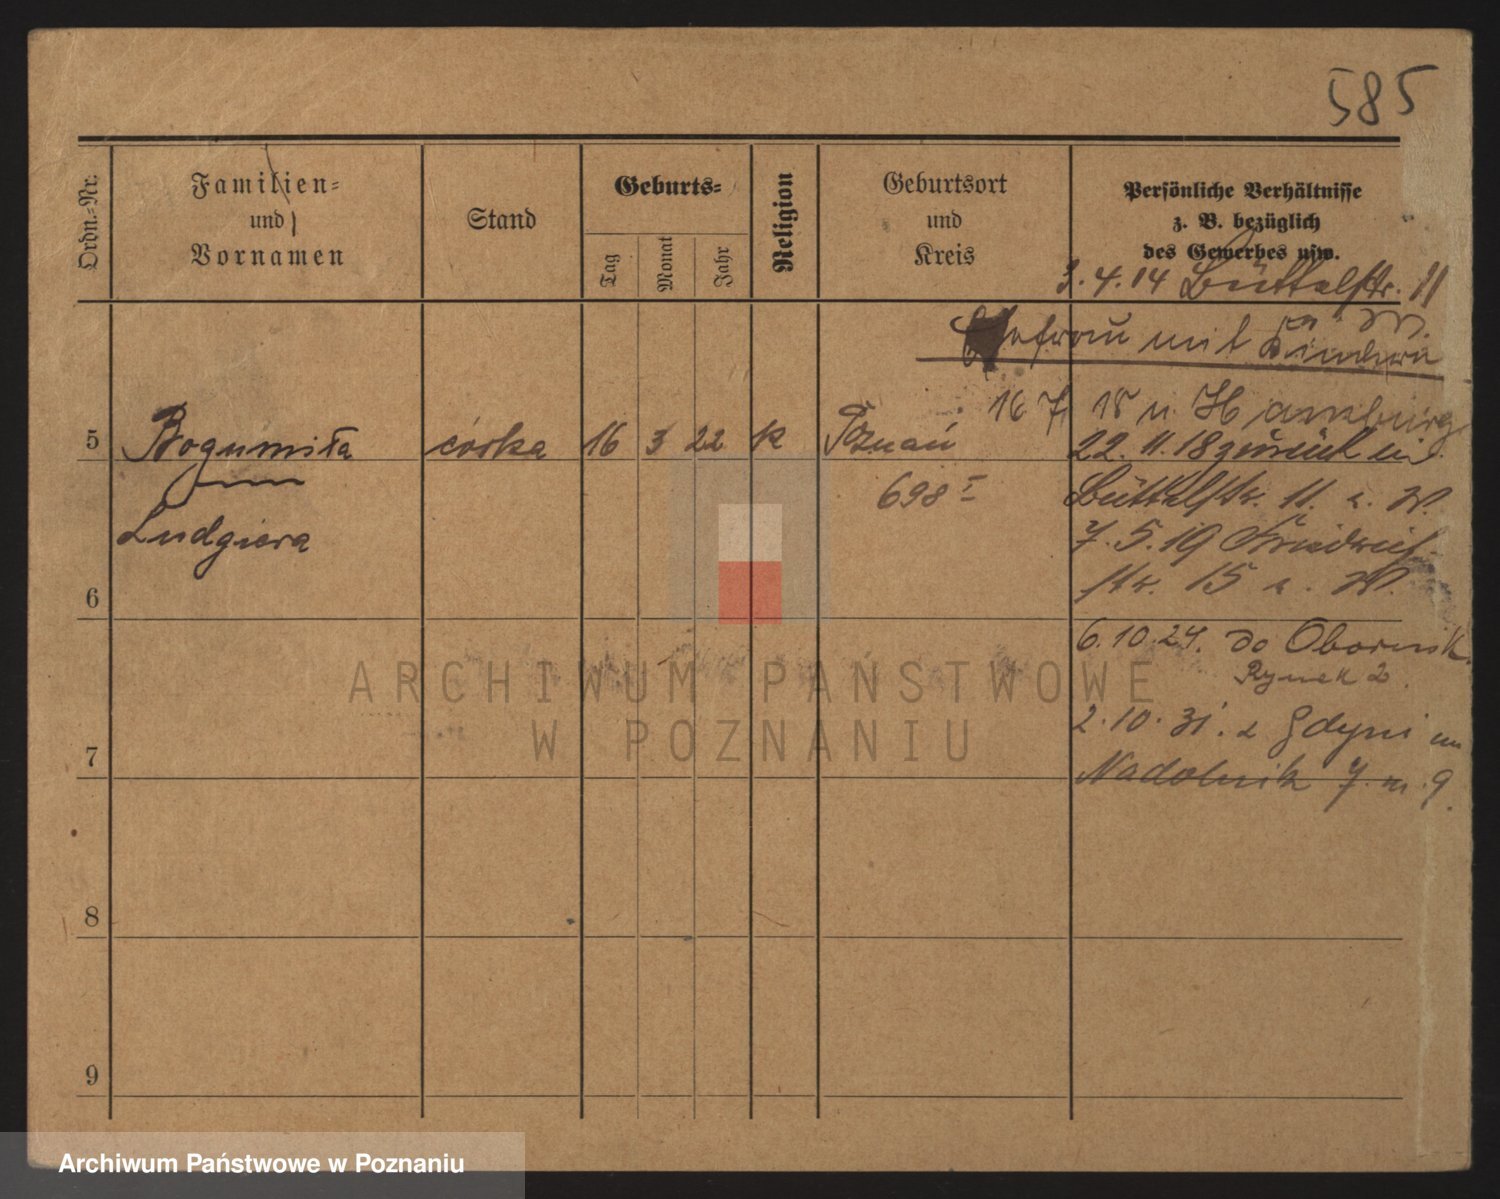 585
Ordn.-Nr.
Familien-
und
Vornamen
Stand
Geburts-
Tag
Monat
Jahr
Religion
Geburtsort
und
Kreis
Persönliche Verhältnisse
z. B. bezüglich
des Gewerbes usw.
3.4.14 Büttelstr. 11
Ehefrau mit Kindern
16 7 18 n Hamburg
5 Bogumiła córka 16 3 22 k Poznań
22.11.18 zurück in
698 I
Büttelstr. 11. z. W.
Ludgiera
7.5.19 Friedrich
str. 15 z. W.
6
6.10.24. do Obornik
Rynek 2.
2.10.31. z Gdyni
7
Nadolnik 7. m. 9.
8
9
ARCHIWUM PAŃSTWOWE
W POZNANIU
Archiwum Państwowe w Poznaniu